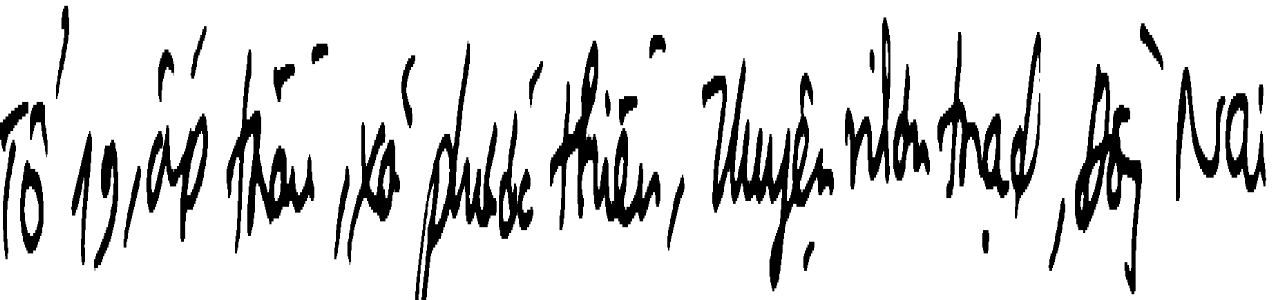 Tổ 19, ấp trầu, xã phước thiền, Huyện nhơn trạch, Đồng Nai